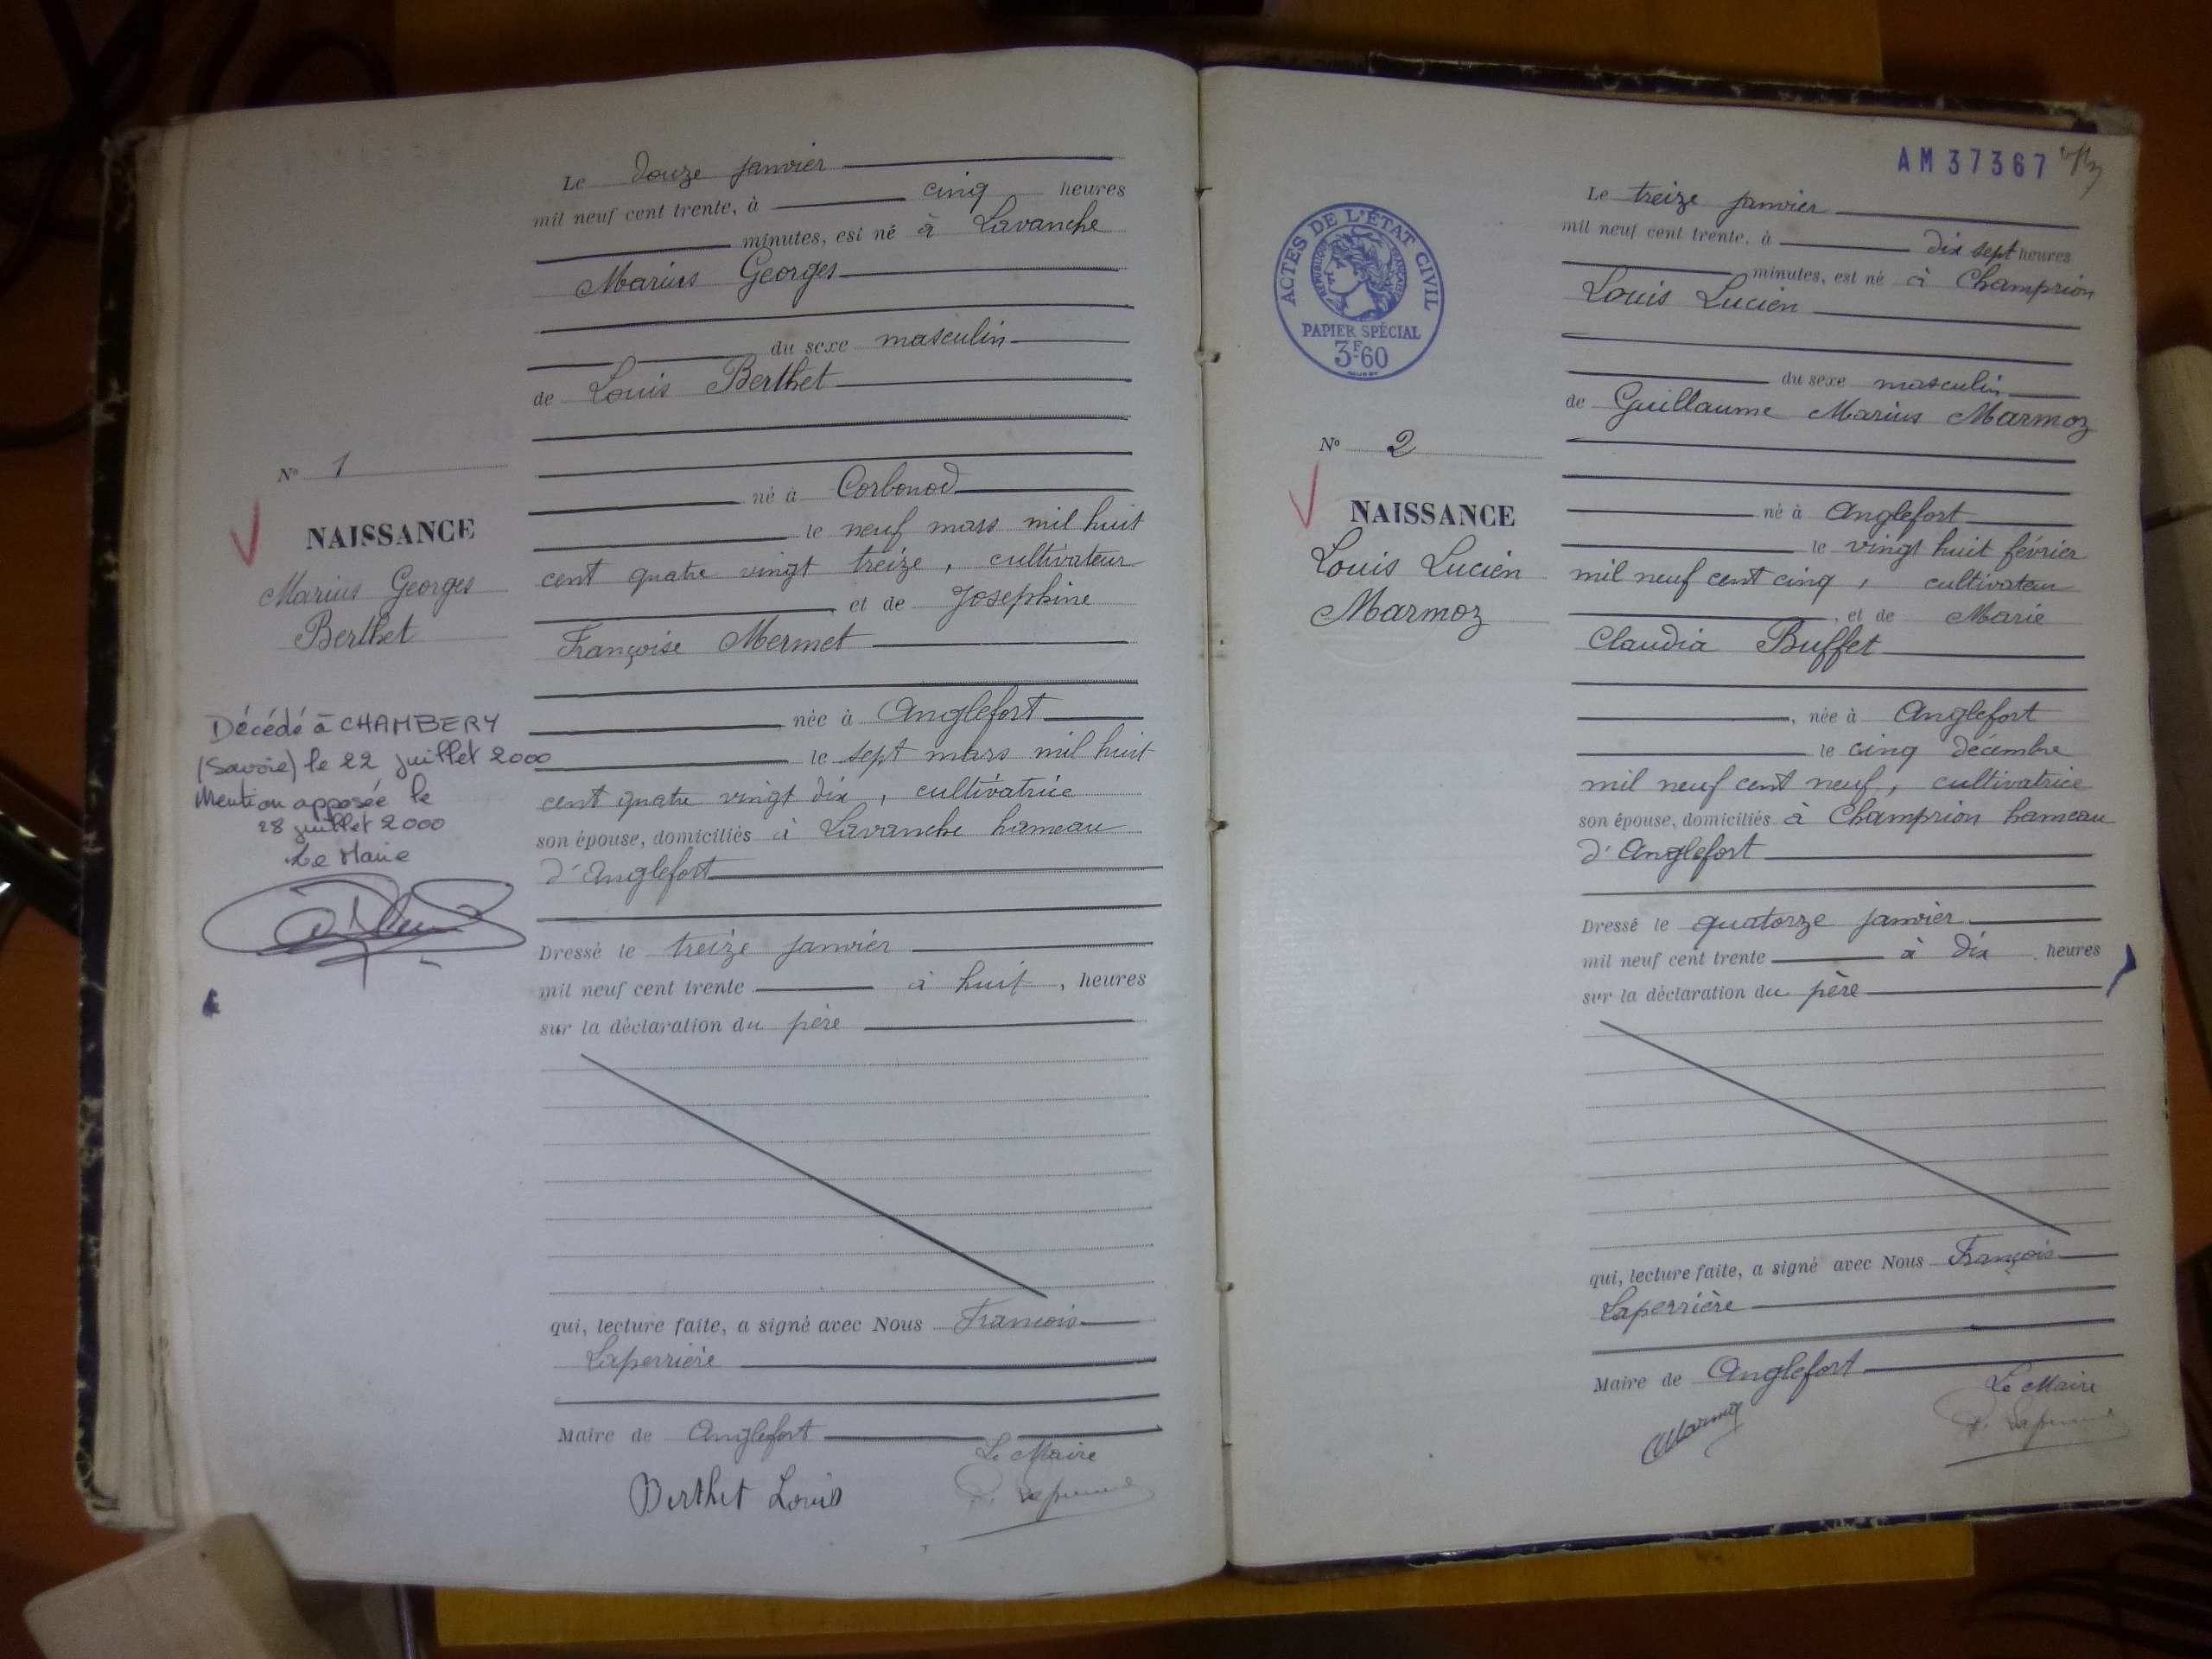 Le douze janvier
mil neuf cent trente, à cinq heures
minutes, est né à Lavanche
Marius Georges
du sexe masculin
de Louis Berthet
né à Corbonod
le neuf mars mil huit
cent quatre vingt treize, cultivateur
et de Josephine
Françoise Mermet
née à Anglefort
le sept mars mil huit
cent quatre vingt dix, cultivatrice
son épouse, domiciliés à Lavanche hameau
d'Anglefort
Dressé le treize janvier
mil neuf cent trente à huit, heures
sur la déclaration du père
qui, lecture faite, a signé avec Nous François
Laperrière
Maire de Anglefort
Le Maire
Berthet Louis
N° 1
NAISSANCE
Marius Georges
Berthet
Décédé à CHAMBERY
(Savoie) le 22 juillet 2000
Mention apposée le
28 juillet 2000
Le Maire
AM 37367
Le treize janvier
mil neuf cent trente, à dix sept heures
minutes, est né à Champrion
Louis Lucien
du sexe masculin
de Guillaume Marius Marmoz
né à Anglefort
le vingt huit février
mil neuf cent cinq, cultivateur
, et de Marie
Claudia Buffet
, née à Anglefort
le cinq décembre
mil neuf cent neuf, cultivatrice
son épouse, domiciliés à Champrion hameau
d'Anglefort
Dressé le quatorze janvier
mil neuf cent trente à dix heures
sur la déclaration du père
qui, lecture faite, a signé avec Nous François
Laperrière
Maire de Anglefort
Le Maire
Marmoz
ACTES DE L'ÉTAT CIVIL
RÉPUBLIQUE FRANÇAISE
PAPIER SPÉCIAL
3F60
N° 2
NAISSANCE
Louis Lucien
Marmoz